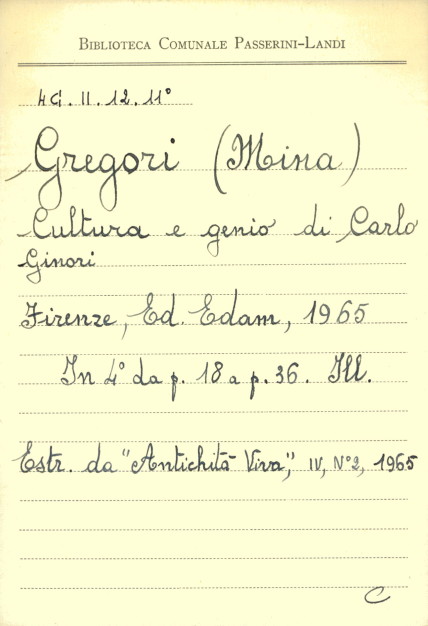 BIBLIOTECA COMUNALE PASSERINI-LANDI
4G. II. 12. 11°
Gregori (Mina)
Cultura e genio di Carlo
Ginori
Firenze, Ed. Edam, 1965
In 4° da p. 18 a p. 36. Ill.
Estr. da "Antichità Viva", IV, N°2, 1965
C